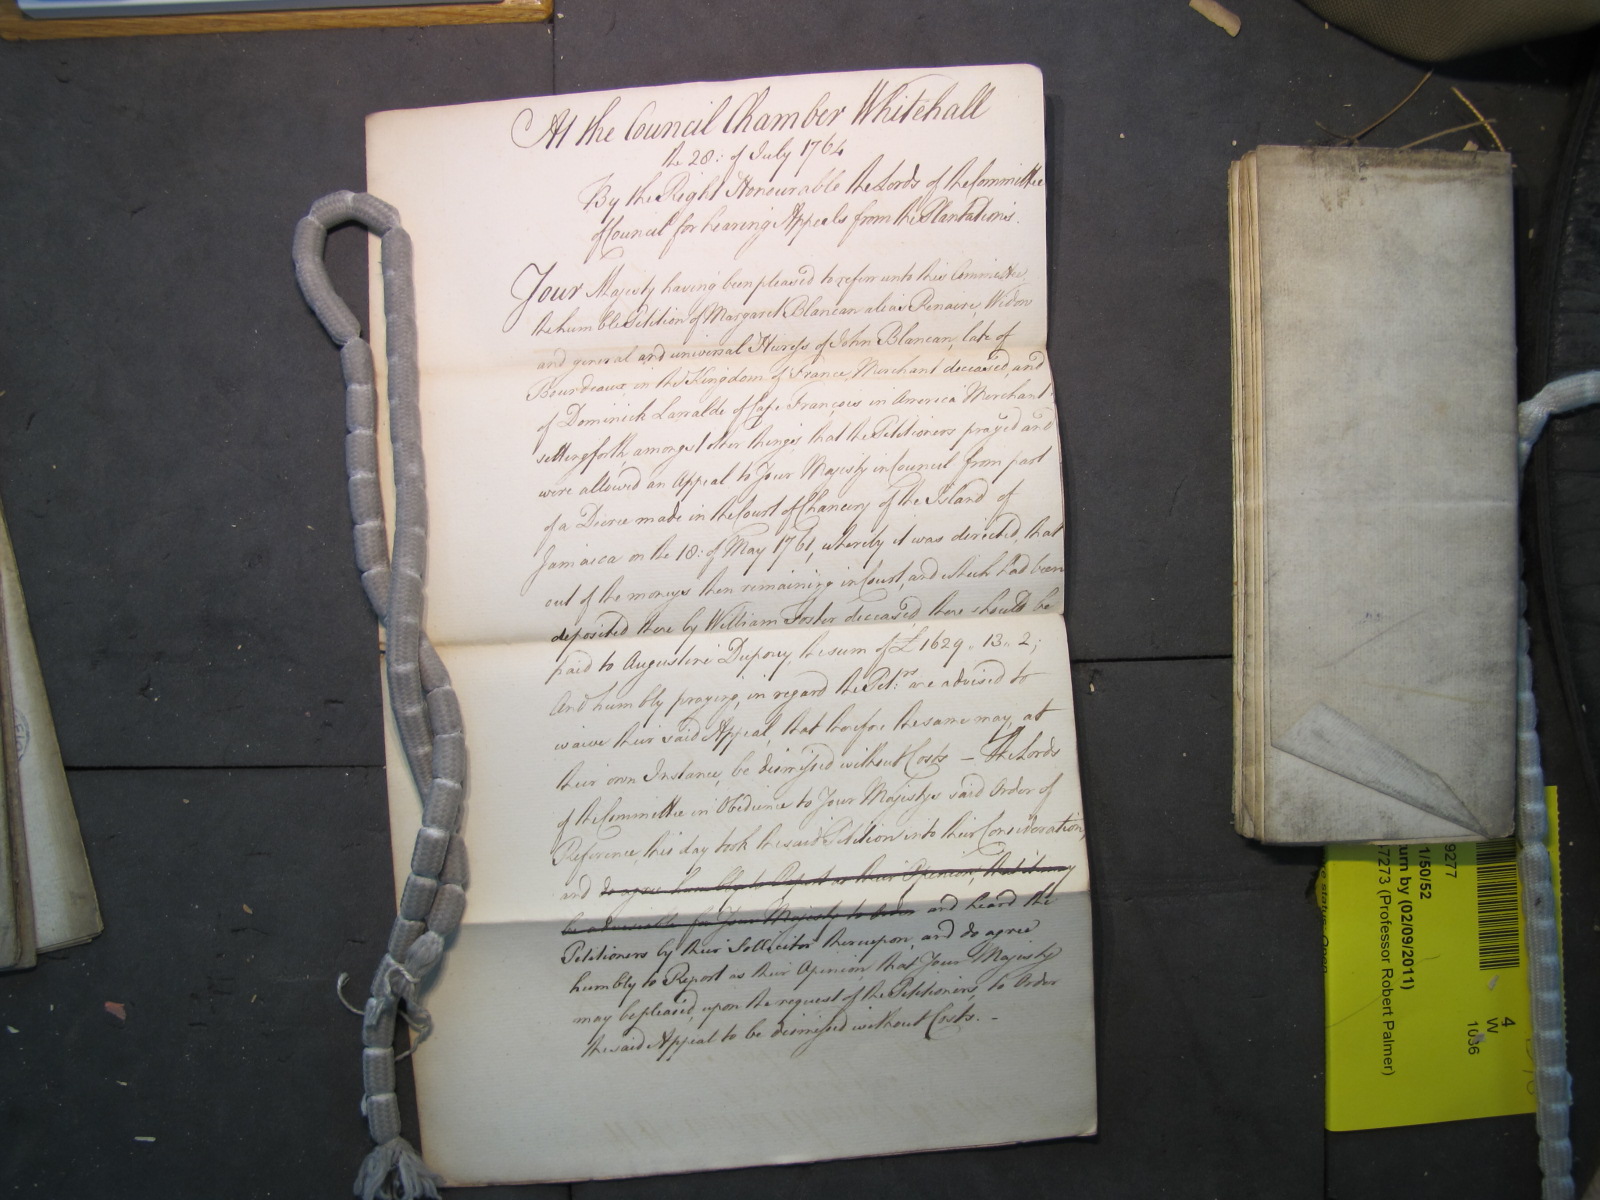 At the Council Chamber Whitehall
the 28: of July 1764
By the Right Honourable the Lords of the Committee
of Council for hearing Appeals from the Plantations.
Your Majesty having been pleased to referr unto this Committee
the humble Petition of Margaret Blancan alias Renaire, Widow
and general and universal Heiress of John Blancan, late of
Bourdeaux in the Kingdom of France, Merchant deceased, and
of Dominick Larralde of Cape François in America Merchant
setting forth amongst other things that the Petitioners prayed and
were allowed an Appeal to Your Majesty in Council from part
of a Decree made in the Court of Chancery of the Island of
Jamaica on the 18: of May 1761, whereby it was directed, that
out of the moneys then remaining in Court, and which had been
deposited there by William Foster deceased, there should be
paid to Augustine Dupouy, the sum of £1629,, 13,, 2;
And humbly praying, in regard the Pet:rs are advised to
waive their said Appeal, that therefore the same may, at
their own Instance, be dismissed without Costs – The Lords
of the Committee in Obedience to Your Majestys said Order of
Reference, this day took the said Petition into their Consideration,
and do agree humbly to Report as their Opinion, that it may
be adviseable for Your Majesty to Order and heard the
Petitioners by their Sollicitor thereupon, and do agree
humbly to Report as their Opinion that Your Majesty
may be pleased, upon the request of the Petitioners, to Order
the said Appeal to be dismissed without Costs. –
9277
1/50/52
urn by (02/09/2011)
7273 (Professor Robert Palmer)
4
W
1036